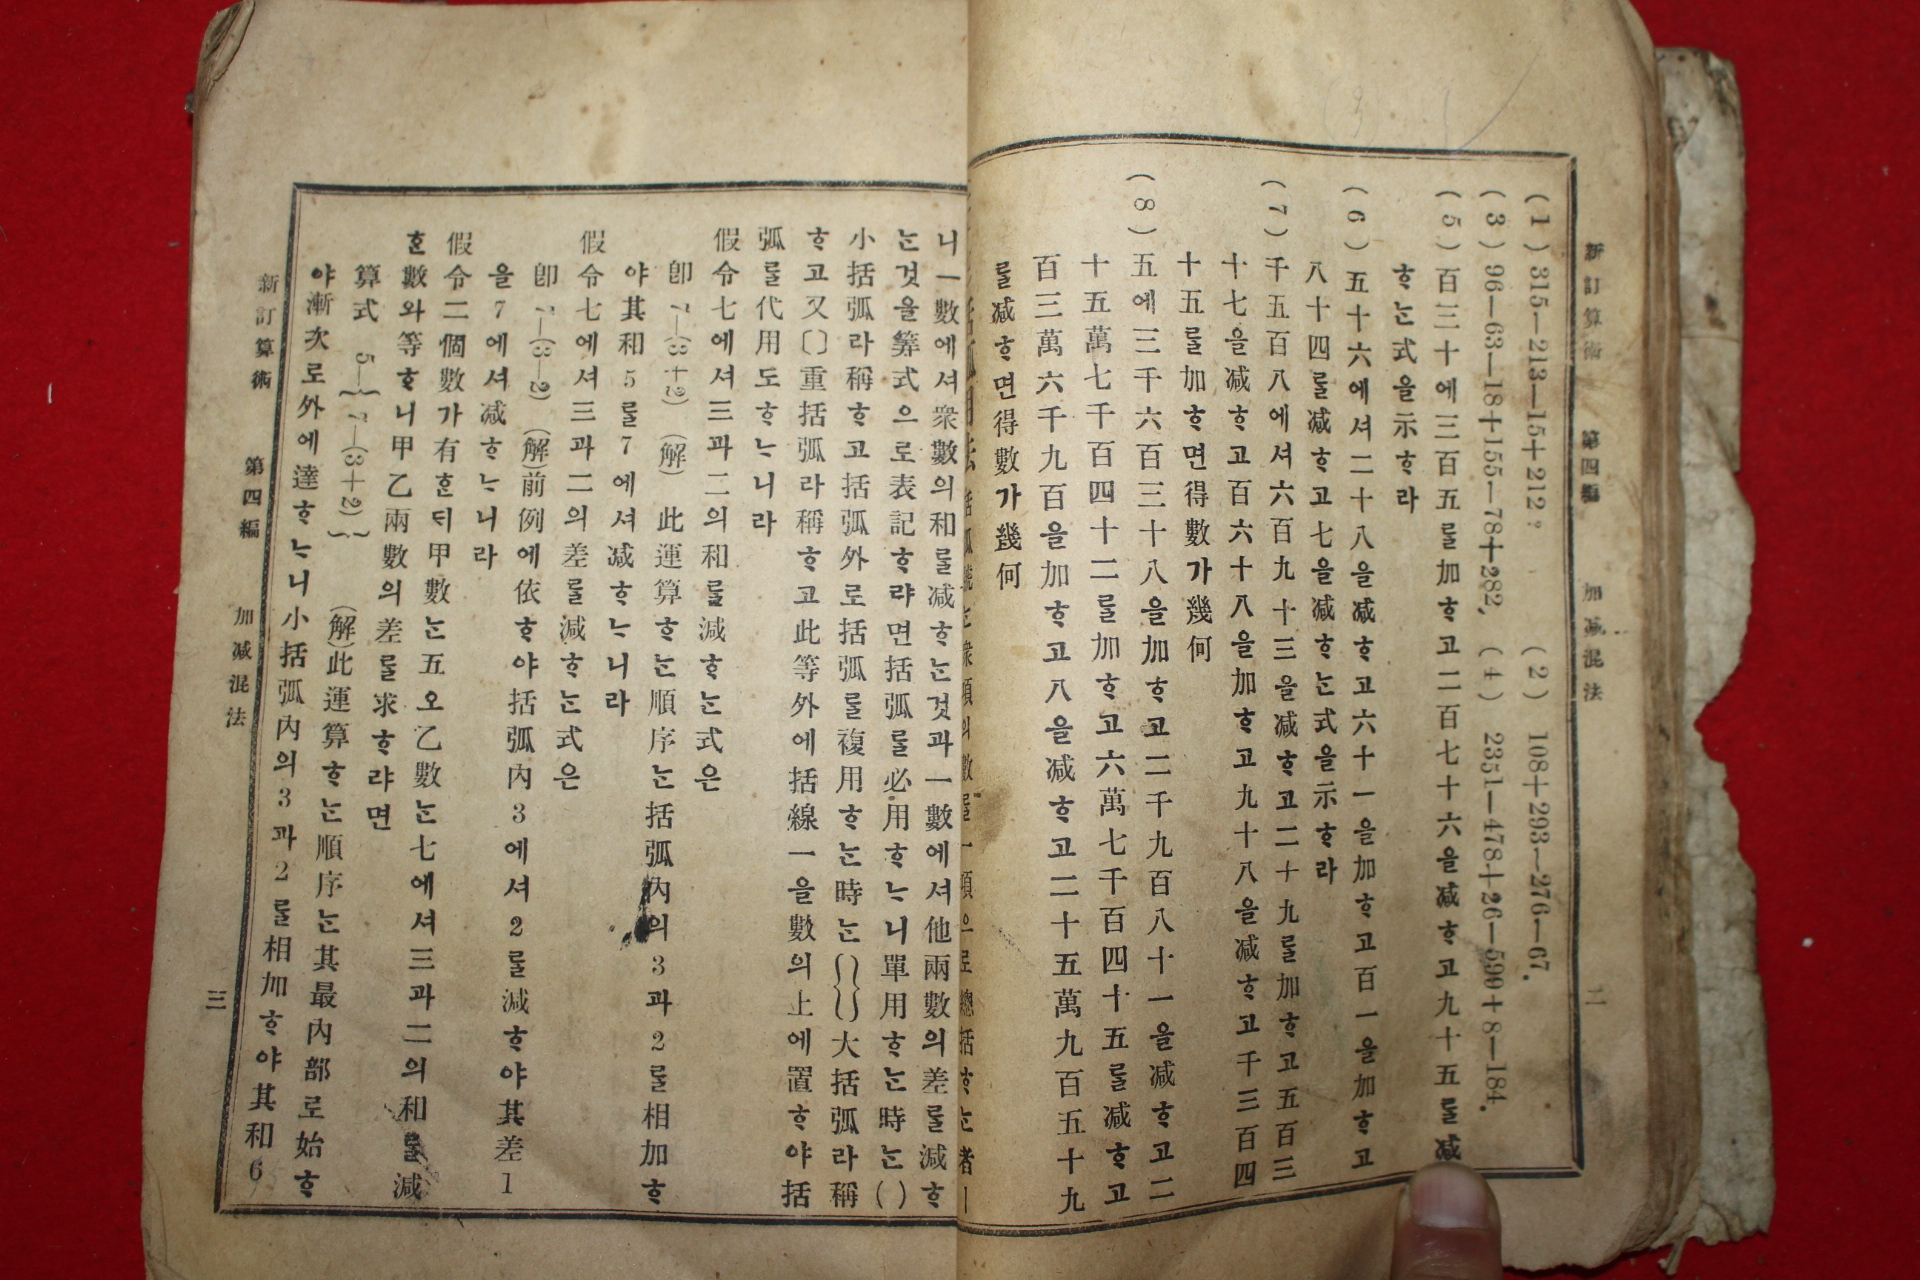 新訂算術 第四編 加减混法 二
(1) 315—213—15+212? (2) 108+293—276—67.
(3) 96—63—18+155—78+282, (4) 2351—478+26—599+8—184.
(5) 百三十에三百五를加ᄒᆞ고二百七十六을减ᄒᆞ고九十五를减
ᄒᆞᄂᆞᆫ式을示ᄒᆞ라
(6) 五十六에셔二十八을减ᄒᆞ고六十一을加ᄒᆞ고百一을加ᄒᆞ고
八十四를减ᄒᆞ고七을减ᄒᆞᄂᆞᆫ式을示ᄒᆞ라
(7) 千五百八에셔六百九十三을减ᄒᆞ고二十九를加ᄒᆞ고五百三
十七을减ᄒᆞ고百六十八을加ᄒᆞ고九十八을减ᄒᆞ고千三百四
十五를加ᄒᆞ면得數가幾何
(8) 五에三千六百三十八을加ᄒᆞ고二千九百八十一을减ᄒᆞ고二
十五萬七千百四十二를加ᄒᆞ고六萬七千百四十五를减ᄒᆞ고
百三萬六千九百을加ᄒᆞ고八을减ᄒᆞ고二十五萬九百五十九
를减ᄒᆞ면得數가幾何
衆項의數를一項으로總括ᄒᆞᄂᆞᆫ者ㅣ
니一數에셔衆數의和를减ᄒᆞᄂᆞᆫ것과一數에셔他兩數의差를减ᄒᆞ
ᄂᆞᆫ것을筭式으로表記ᄒᆞ랴면括弧를必用ᄒᆞᄂᆞ니單用ᄒᆞᄂᆞᆫ時ᄂᆞᆫ( )
小括弧라稱ᄒᆞ고括弧外로括弧를複用ᄒᆞᄂᆞᆫ時ᄂᆞᆫ{ }大括弧라稱
ᄒᆞ고又〔 〕重括弧라稱ᄒᆞ고此等外에括線一을數의上에置ᄒᆞ야括
弧를代用도ᄒᆞᄂᆞ니라
假令七에셔三과二의和를减ᄒᆞᄂᆞᆫ式은
卽 7—(3+2) (解) 此運算ᄒᆞᄂᆞᆫ順序ᄂᆞᆫ括弧內의3과2를相加ᄒᆞ
야其和5를7에셔减ᄒᆞᄂᆞ니라
假令七에셔三과二의差를减ᄒᆞᄂᆞᆫ式은
卽 7—(3—2) (解)前例에依ᄒᆞ야括弧內3에셔2를减ᄒᆞ야其差1
을7에셔减ᄒᆞᄂᆞ니라
假令二個數가有ᄒᆞᆫᄃᆡ甲數ᄂᆞᆫ五오乙數ᄂᆞᆫ七에셔三과二의和를减
ᄒᆞᆫ數와等ᄒᆞ니甲乙兩數의差를求ᄒᆞ랴면
算式 5—{7—(3+2)} (解)此運算ᄒᆞᄂᆞᆫ順序ᄂᆞᆫ其最內部로始ᄒᆞ
야漸次로外에達ᄒᆞᄂᆞ니小括弧內의3과2를相加ᄒᆞ야其和6
新訂算術 第四編 加减混法 三